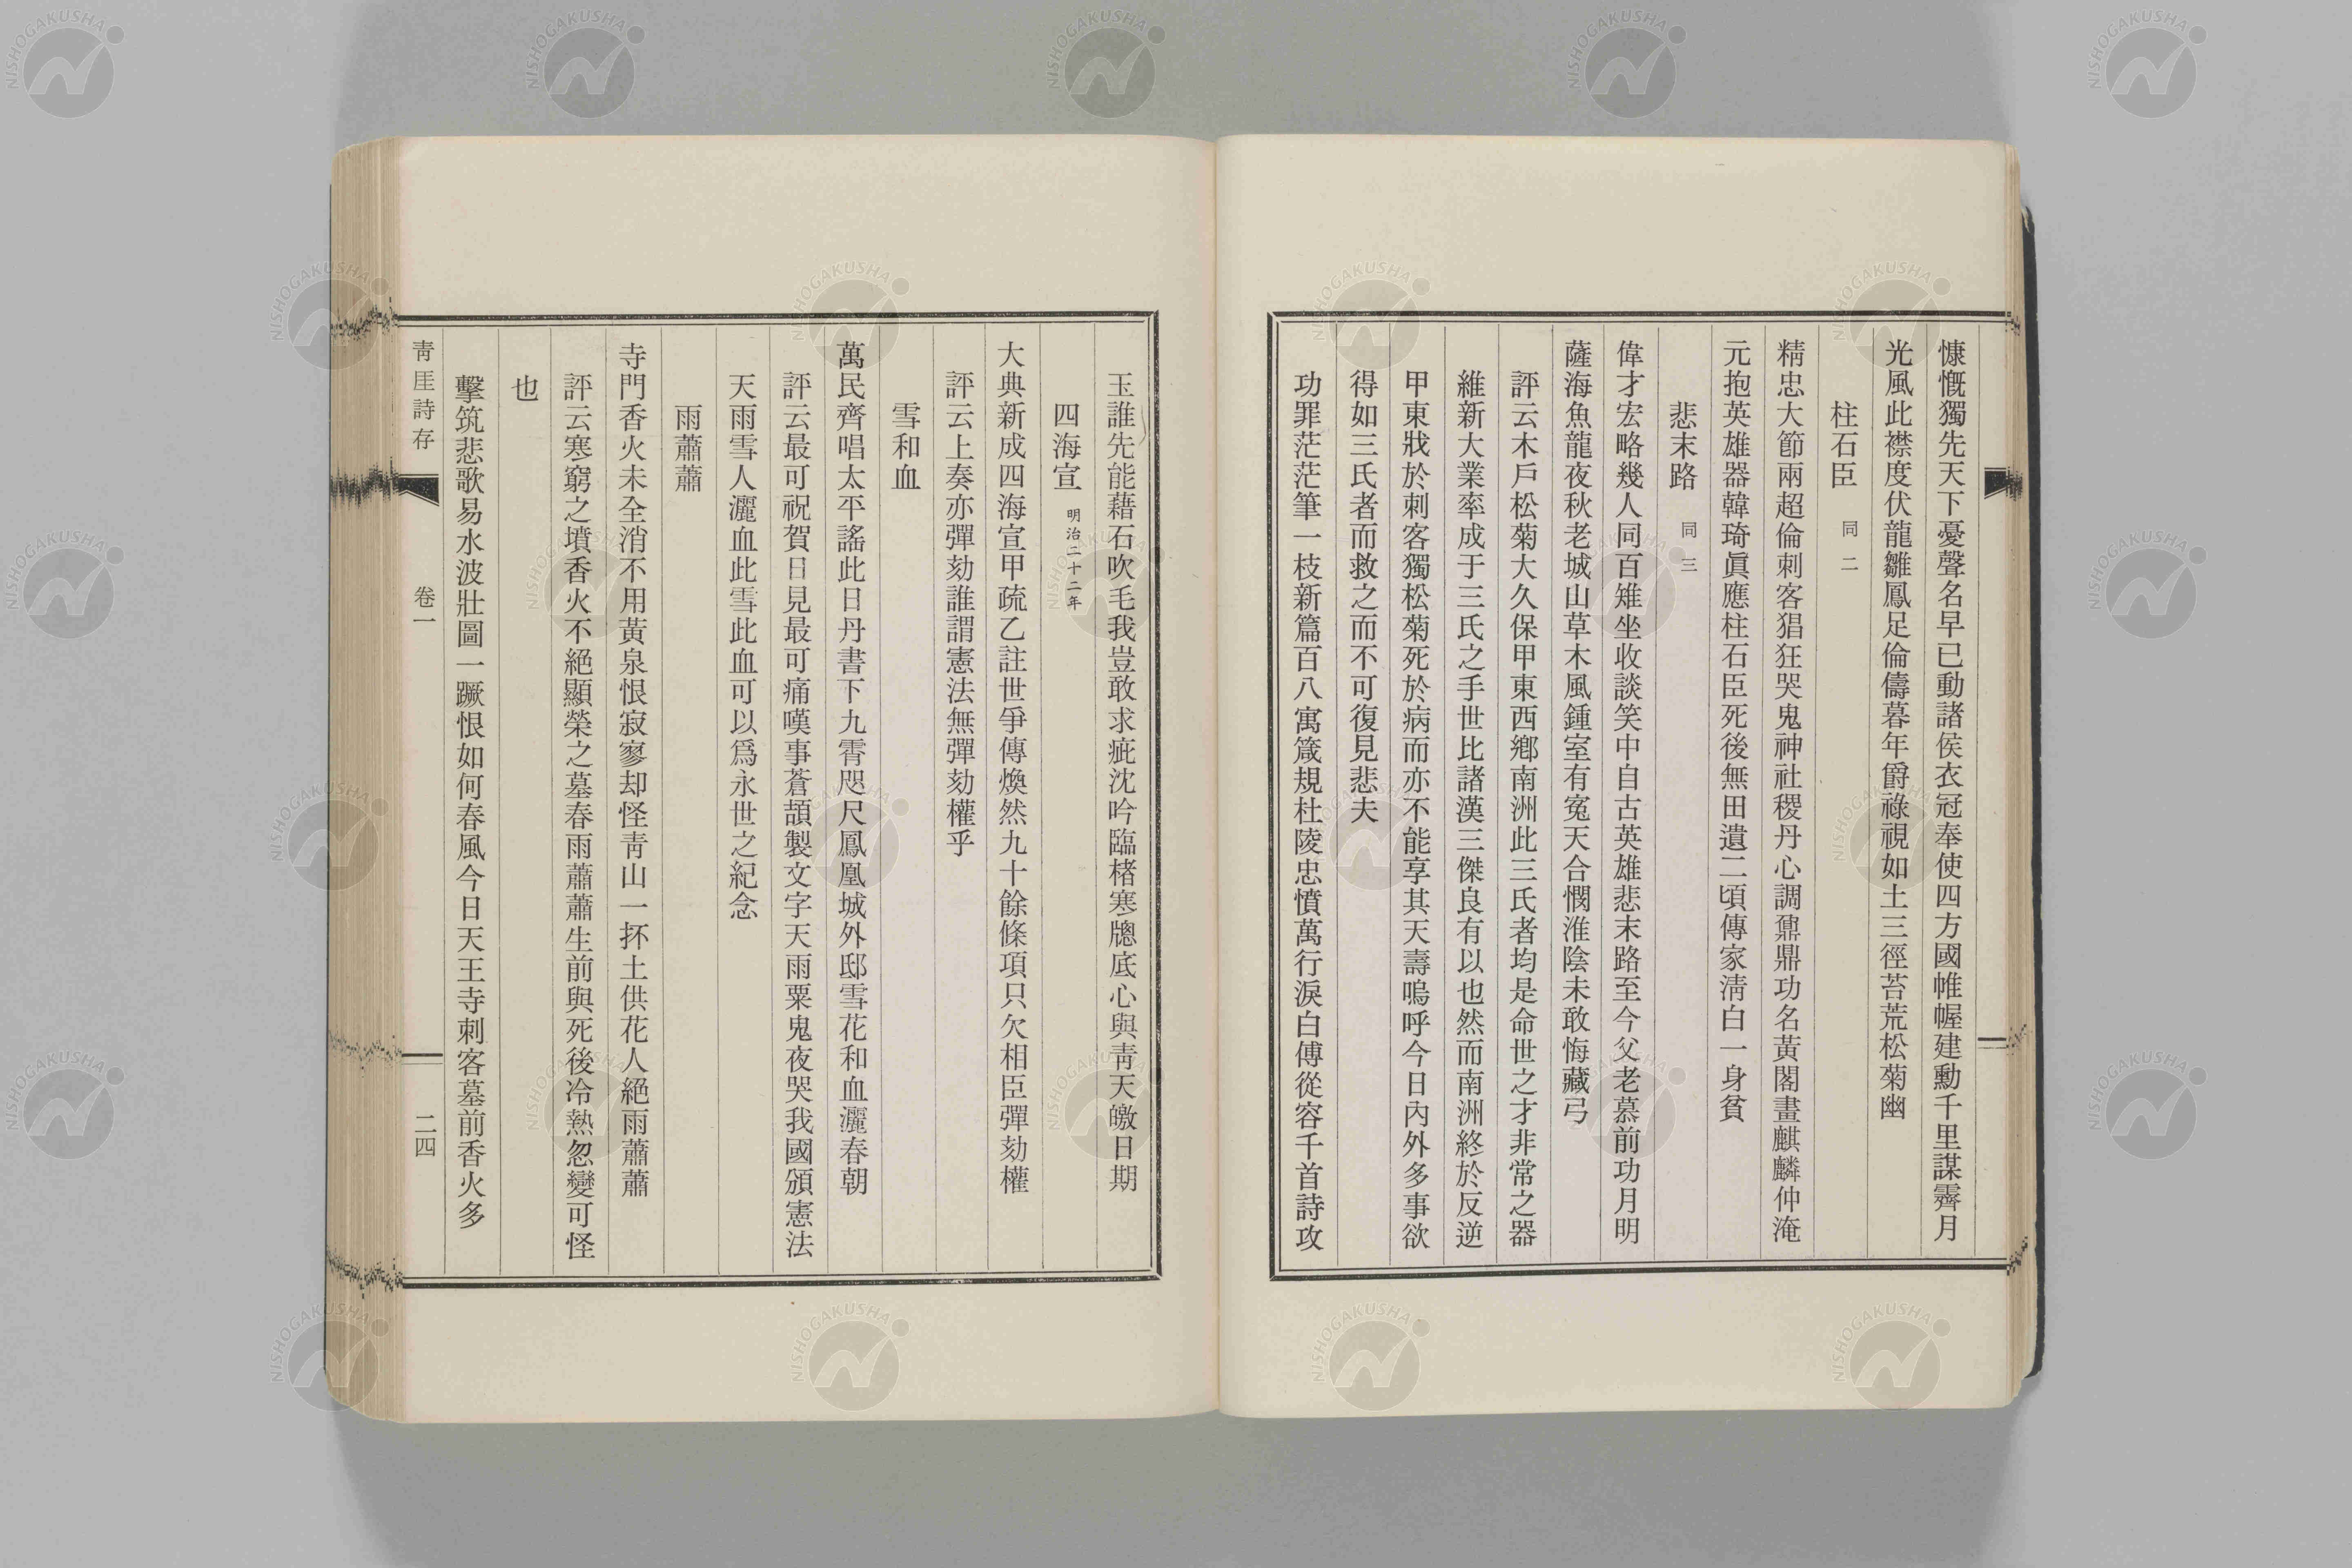 慷慨獨先天下憂聲名早已動諸侯衣冠奉使四方國帷幄建勳千里謀霽月
光風此襟度伏龍雛鳳足倫儔暮年爵祿視如土三徑苔荒松菊幽
柱石臣 同二
精忠大節兩超倫刺客猖狂哭鬼神社稷丹心調鼐鼎功名黃閣畫麒麟仲淹
元抱英雄器韓琦眞應柱石臣死後無田遺二頃傳家淸白一身貧
悲末路 同三
偉才宏略幾人同百雉坐收談笑中自古英雄悲末路至今父老慕前功月明
薩海魚龍夜秋老城山草木風鍾室有寃天合憫淮陰未敢悔藏弓
評云木戶松菊大久保甲東西鄉南洲此三氏者均是命世之才非常之器
維新大業率成于三氏之手世比諸漢三傑良有以也然而南洲終於反逆
甲東戕於刺客獨松菊死於病而亦不能享其天壽嗚呼今日內外多事欲
得如三氏者而救之而不可復見悲夫
功罪茫茫筆一枝新篇百八寓箴規杜陵忠憤萬行淚白傅從容千首詩攻
玉誰先能藉石吹毛我豈敢求疵沈吟臨楮寒牕底心與靑天皦日期
四海宣 明治二十二年
大典新成四海宣甲疏乙註世爭傳煥然九十餘條項只欠相臣彈劾權
評云上奏亦彈劾誰謂憲法無彈劾權乎
雪和血
萬民齊唱太平謠此日丹書下九霄咫尺鳳凰城外邸雪花和血灑春朝
評云最可祝賀日見最可痛嘆事蒼頡製文字天雨粟鬼夜哭我國頒憲法
天雨雪人灑血此雪此血可以爲永世之紀念
雨蕭蕭
寺門香火未全消不用黃泉恨寂寥却怪靑山一抔土供花人絕雨蕭蕭
評云寒窮之墳香火不絕顯榮之墓春雨蕭蕭生前與死後冷熱忽變可怪
也
擊筑悲歌易水波壯圖一蹶恨如何春風今日天王寺刺客墓前香火多
靑厓詩存 卷一 二四
NISHOGAKUSHA